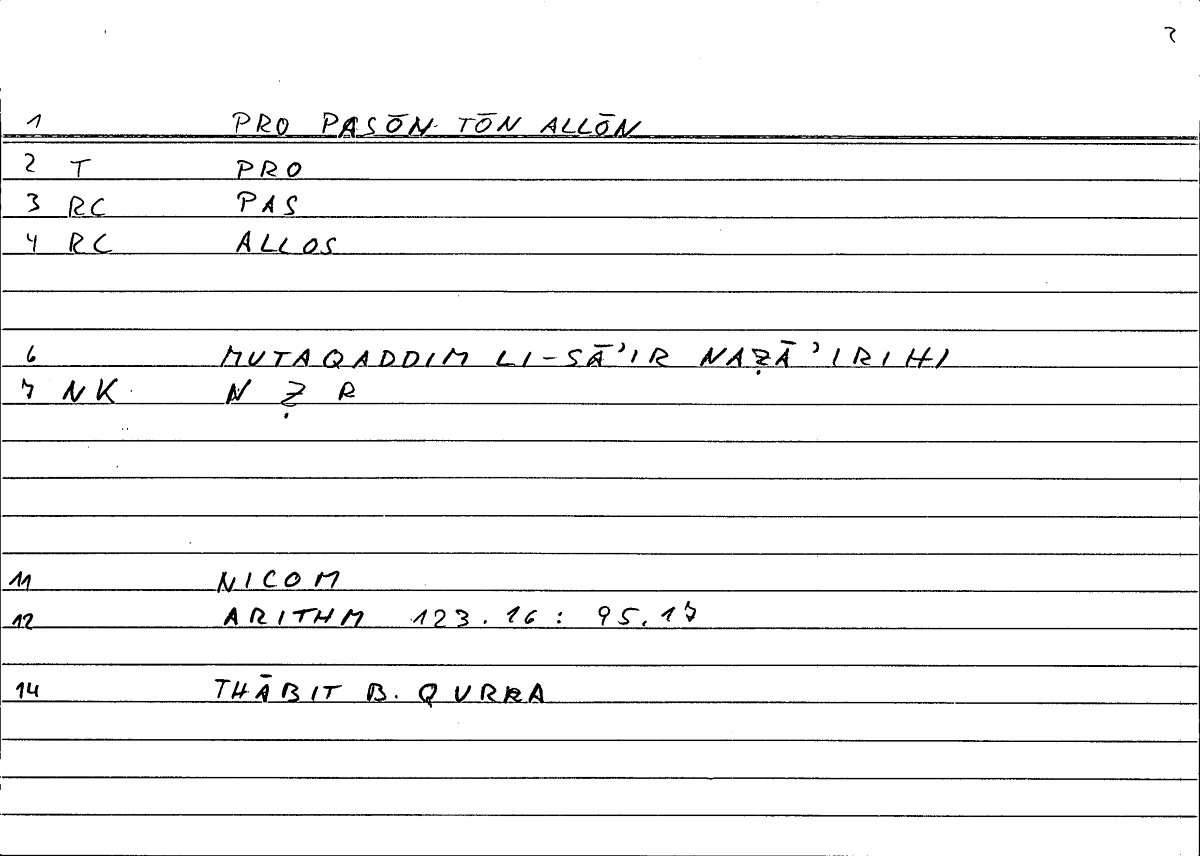 1 PRO PASŌN TŌN ALLŌN
2 T PRO
3 RC PAS
4 RC ALLOS
6 MUTAQADDIM LI-SĀʾIR NAẒĀʾIRIHI
7 NK N Ẓ R
11 NICOM
12 ARITHM 123.16: 95.17
14 THĀBIT B. QURRA